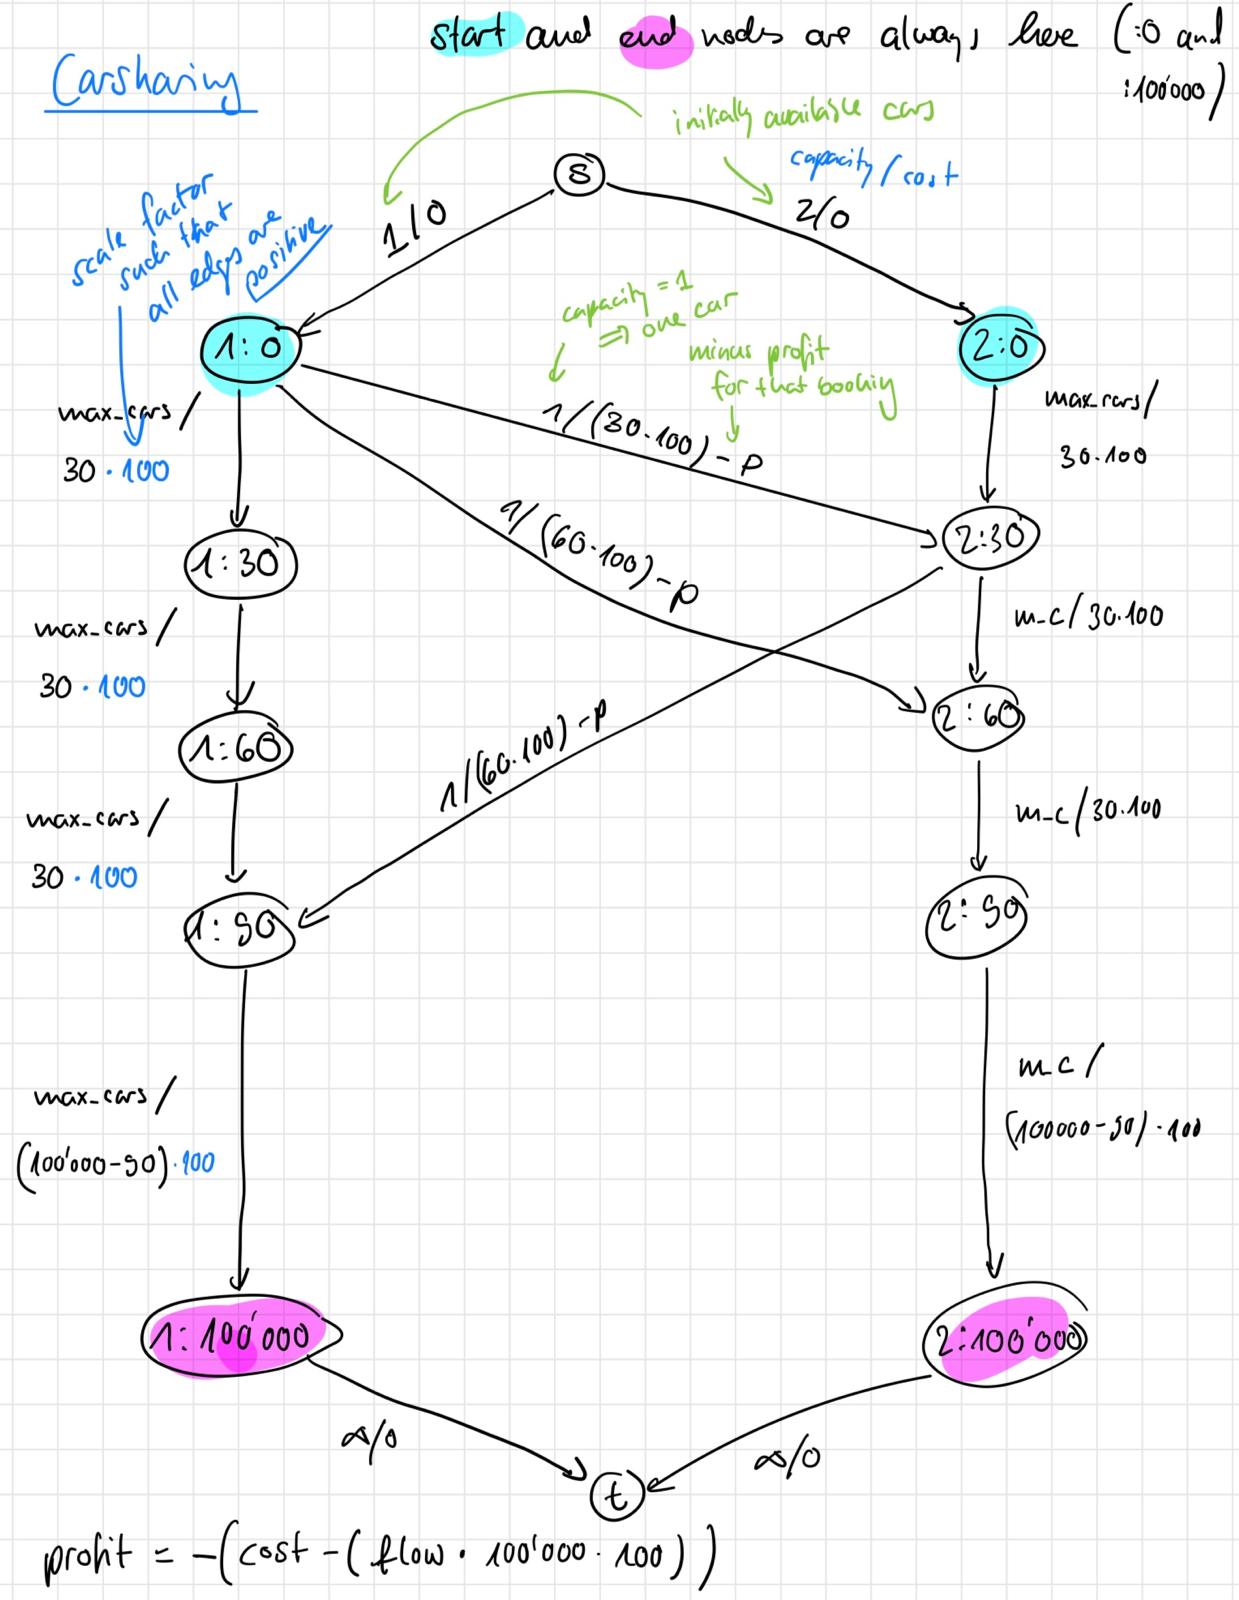 start and end nodes are always here (:0 and
:100'000)
Carsharing
initially available cars
capacity/cost
S
scale factor
such that
all edges are
positive
1/0
2/0
capacity = 1
⇒ one car
minus profit
for that booking
1:0
2:0
max_cars /
30 · 100
max_cars/
30·100
1/(30·100) - p
1/(60·100) - p
1:30
2:30
max_cars /
30 · 100
m_c/30·100
1:60
2:60
1/(60·100) - p
max_cars /
30 · 100
m_c/30·100
1:90
2:90
max_cars /
(100'000-90)·100
m_c /
(100000-90)·100
1:100'000
2:100'000
∞/0
∞/0
t
profit = -(cost - (flow · 100'000 · 100))